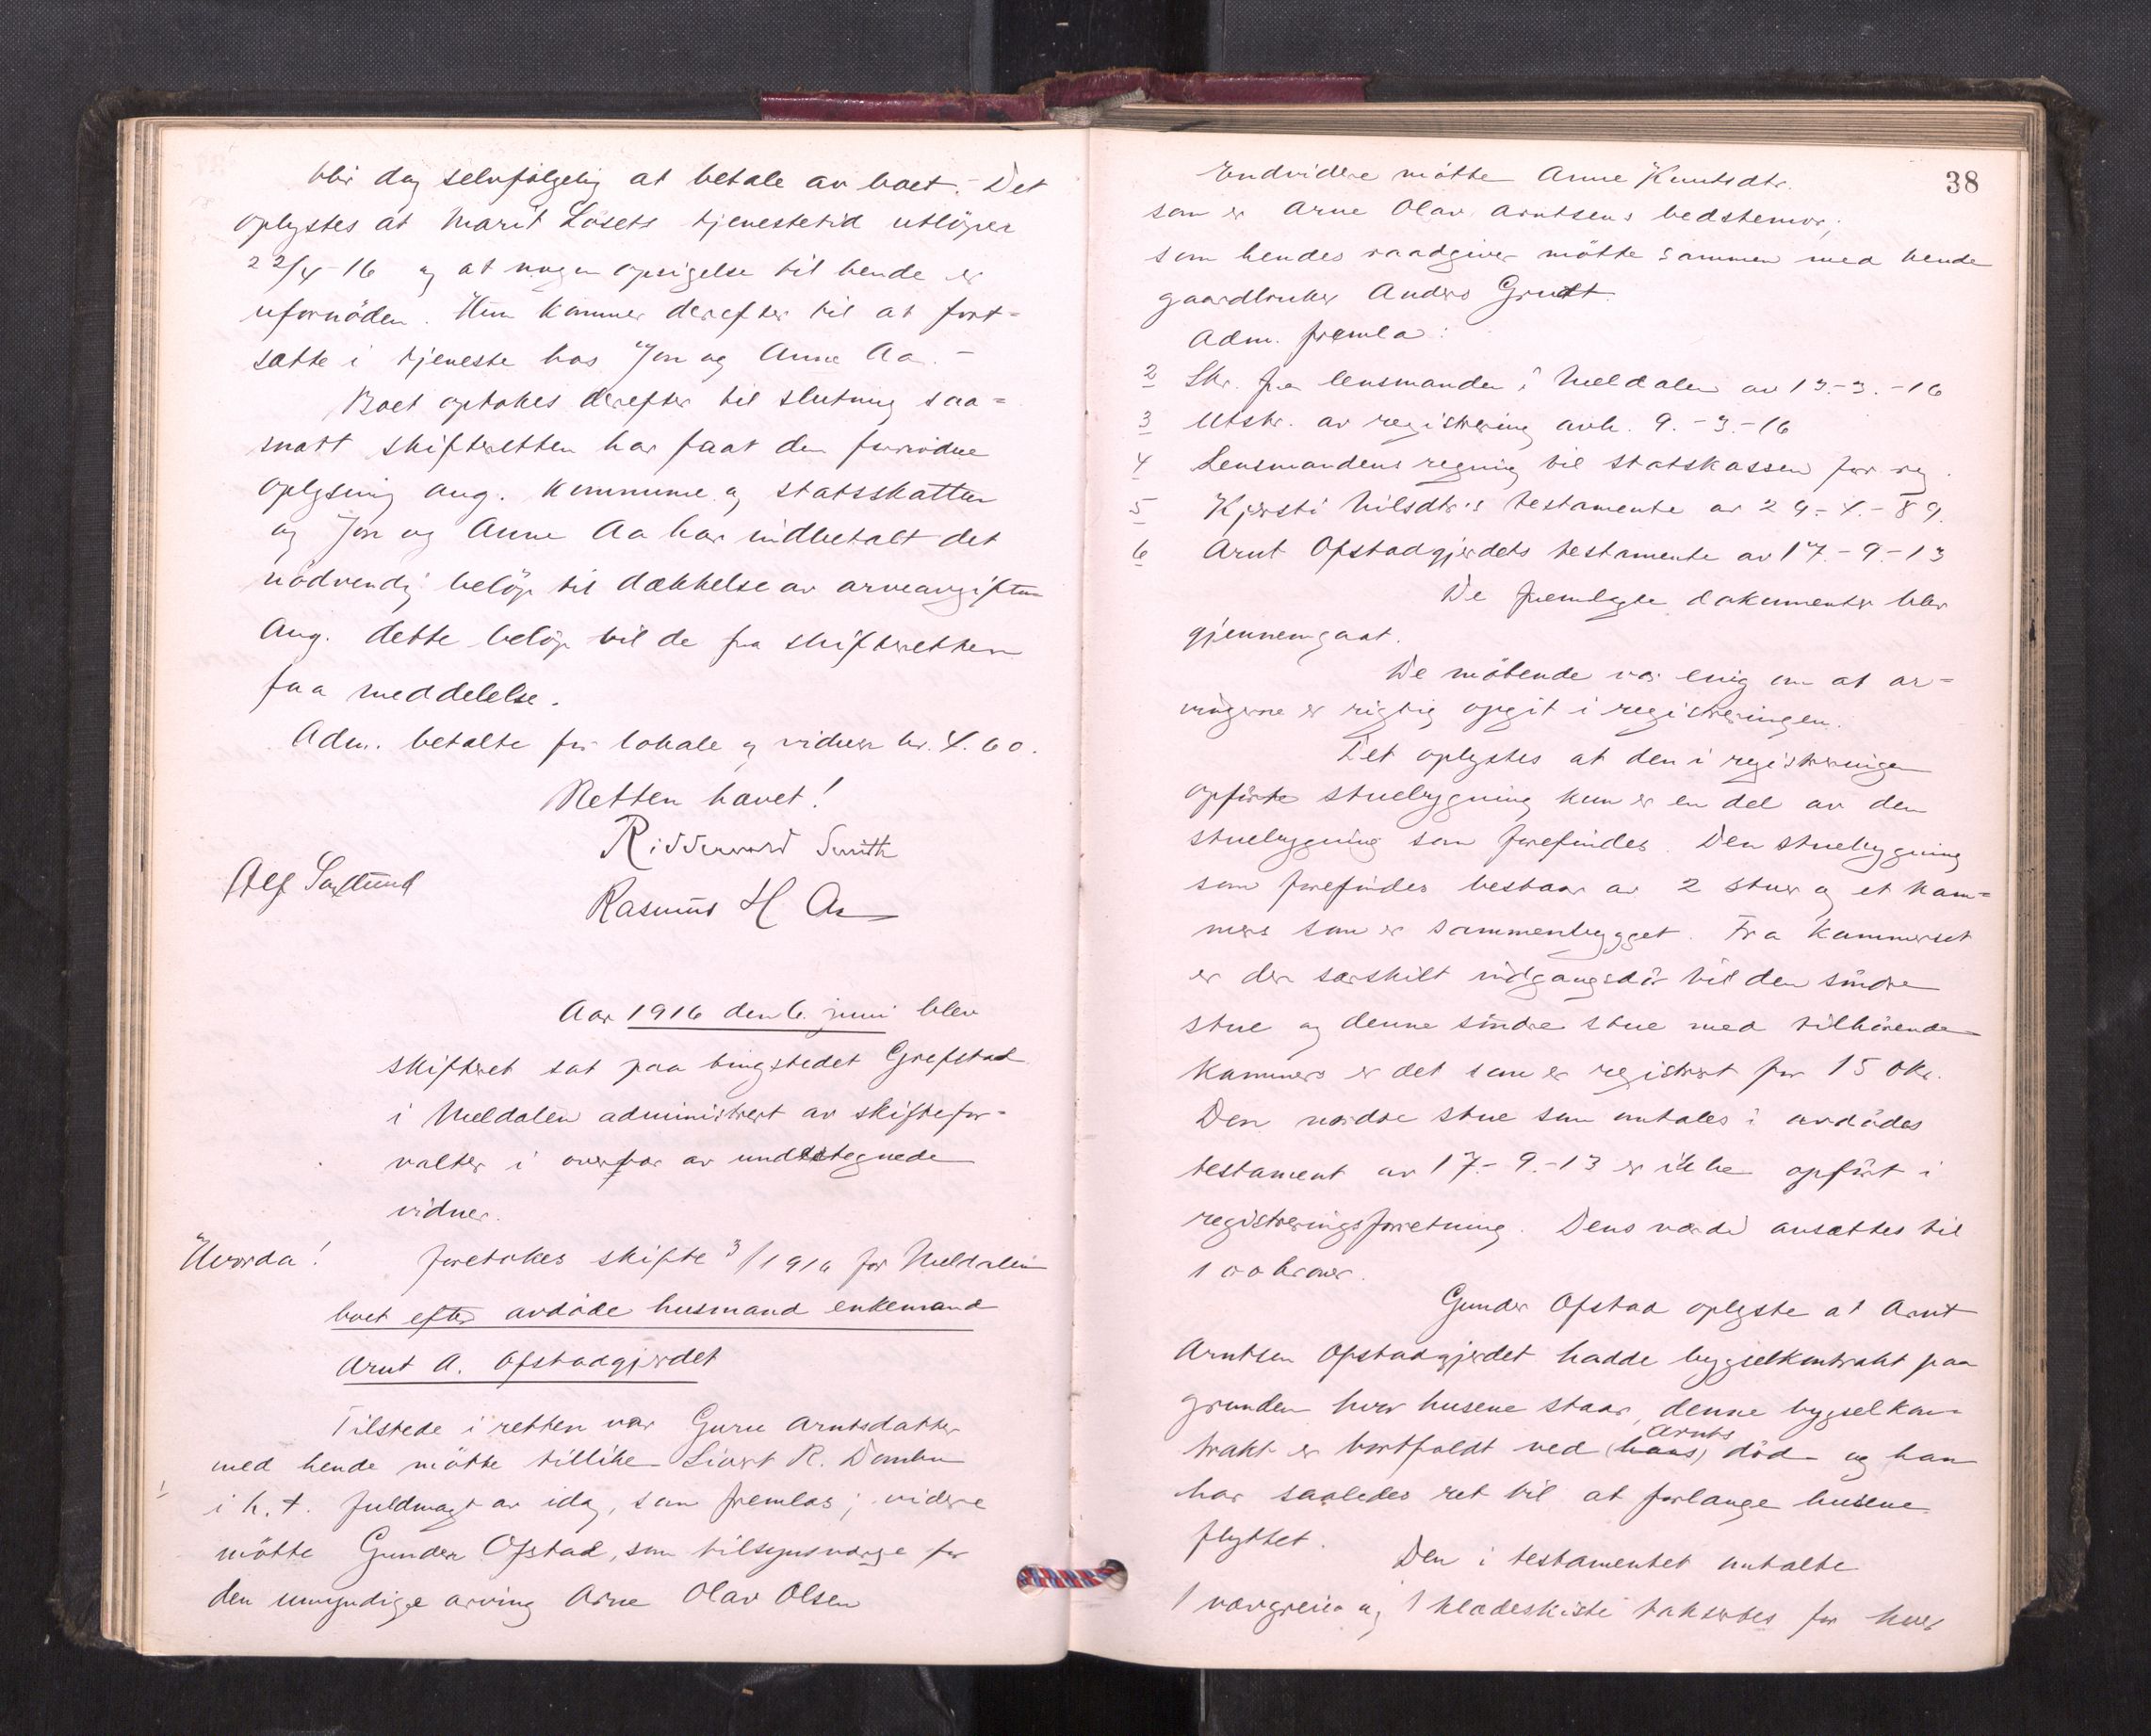 blir dog selvfølgelig at betale av boet. - Det
oplystes at Marit Løsets tjenestetid utløper
22/4-16 og at nogen opsigelse til hende er
ufornöden. Hun kommer derefter til at fort-
sætte i tjeneste hos Jon og Anne Aa. -
Boet optokes derefter til slutning saa-
snart skifteretten har faat den fornödne
oplysning ang. kommune og statsskatten
og Jon og Anne Aa har indbetalt det
nödvendig belöp til dækkelse av arveavgiften
Ang. dette belöp vil de fra skifteretten
faa meddelelse.
Adm. betalte for lokale og vidner kr. 4.60.
Retten hævet!
Ridderword Smith
Alf
Rasmus H Aa
Aar 1916 den 6. juni blev
skifteret sat paa tingstedet Grefstad
i Meldalen administrert av skiftefor-
valter i overvær av undertegnede
vidner.
Hvorda!
foretokes skifte 3/1916 for Meldalen
boet efter avdöde husmand enkemand
Arnt A. Ofstadgjerdet
Tilstede i retten var Guru Arntsdatter
med hende mötte tillike Sivert R. Dombu
1
i h. t. fuldmagt av idag, som fremlaes; videre
mötte Gunder Ofstad, som tilsynsverge for
den umyndige arving Arne Olav Olsen
38
Endvidere mötte Anne Knutsdtr.
som er Arne Olav Arntsens bedstemor;
som hendes raadgiver mötte sammen med hende
gaardbruker Anders Grudt.
Adm. fremla:
2 Skr. fra lensmanden i Meldalen av 13.-3.-16
3 Utskr. av registrering avh. 9.-3.-16
4 Lensmandens regning til statskassen for reg.
5 Kjersti Nilsdtr's testamente av 29.-4.-89.
6 Arnt Ofstadgjerdets testamente av 17.-9.-13
De fremlagte dokumenter blev
gjennemgaat.
De mötende var enig om at ar-
vingerne er rigtig opgit i registreringen.
Det oplystes at den i registreringen
opförte stuebygning kun er en del av den
stuebygning som forefindes. Den stuebygning
som forefindes bestaar av 2 stuer og et kam-
mers som er sammenbygget. Fra kammerset
er der særskilt indgangsdör til den söndre
stue og denne söndre stue med tilhörende
kammers er det som er registrert for 150 kr.
Den nordre stue som omtales i avdödes
testament av 17.-9.-13 er ikke opfört i
registreringsforretning. Dens værdi ansættes til
100 kroner.
Gunder Ofstad oplyste at Arnt
Arntsen Ofstadgjerdet hadde bygselkontrakt paa
grunden hvor husene staar, denne bygselkon-
trakt er bortfaldt ved (hans) Arnts död og han
har saaledes ret til at forlange husene
flyttet.
Den i testamentet omtalte
1 vævgreie og 1 klædeskiste takseres for hver